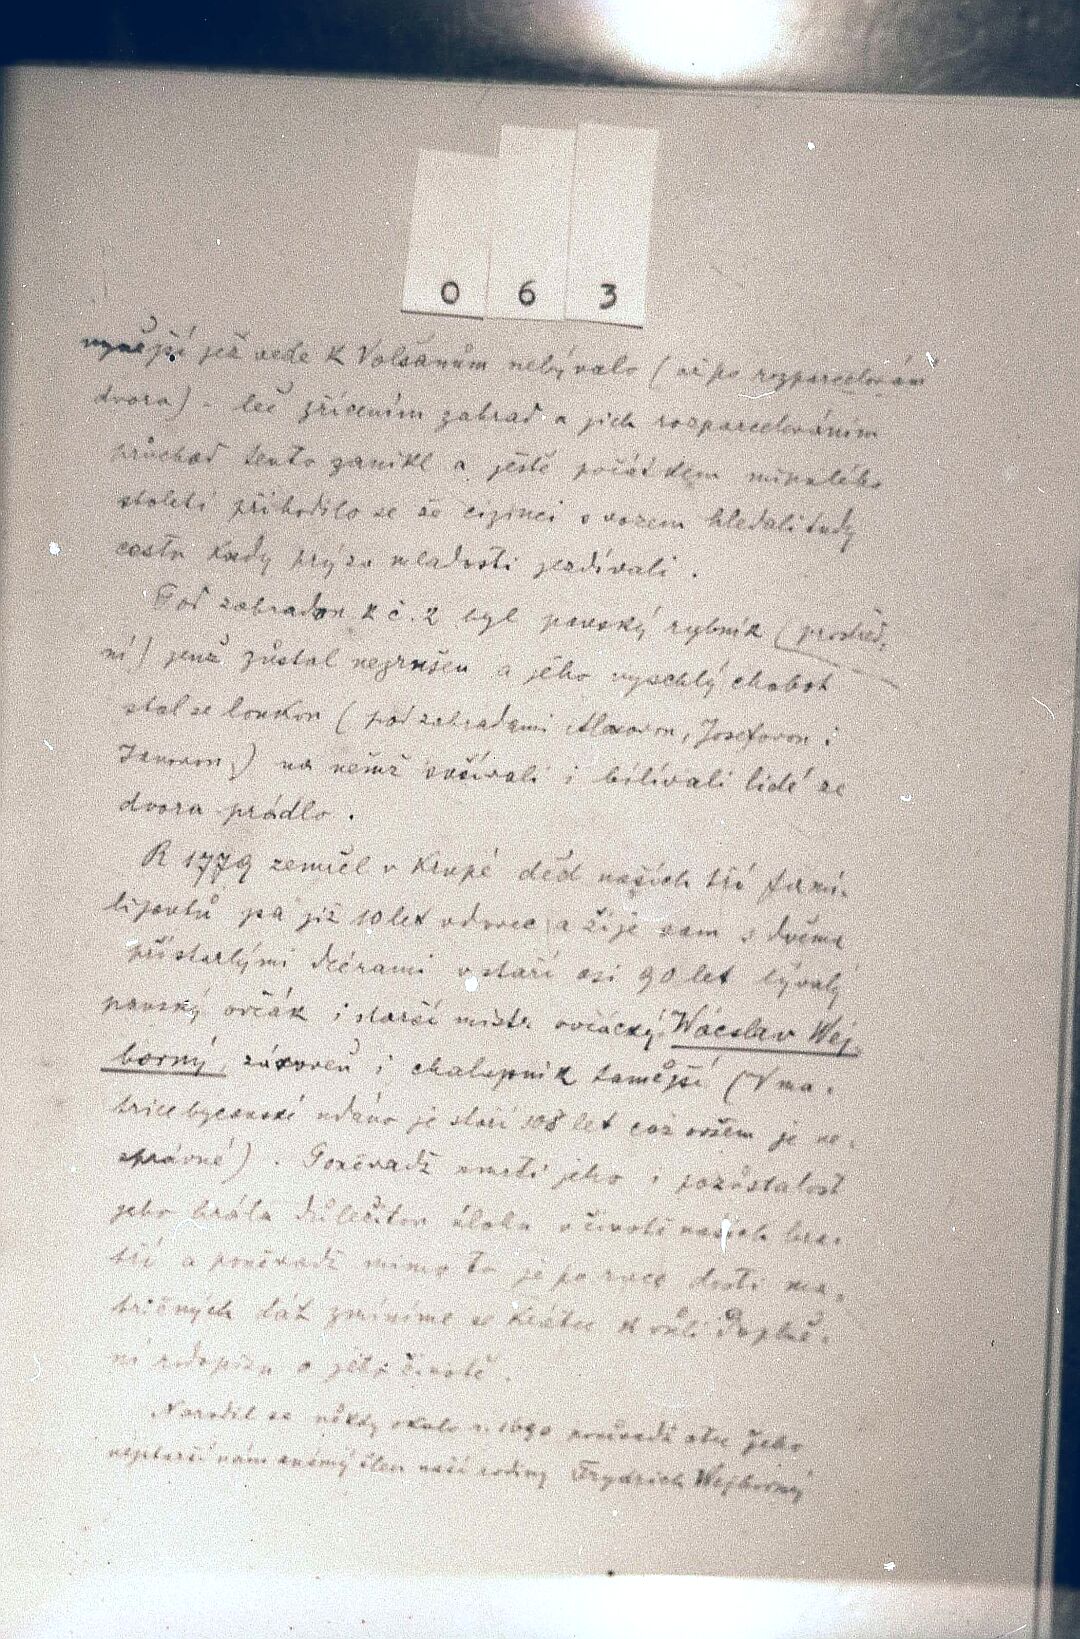 0 6 3
nynější jež vede k Volšanům nebývalo (až po rozparcelování
dvora) - leč zřízením zahrad a jich rozparcelováním
průchod tento zanikl a ještě počátkem minulého
století přihodilo se že cizinci s vozem hledali tudy
cestu kudy prý za mladosti jezdívali.
Pod zahradou k č. 2 byl panský rybník (prostřed-
ní) jenž zůstal nezrušen a jeho vyschlý chobot
stal se loukou (pod zahradami Alexovou, Josefovou i
Janovou) na němž i bílívali lidé ze
dvora prádlo.
R 1779 zemřel v Krupé děd našich tří fami-
lijantů pa již 10 let vdovec a žije sám s dvěma
přistarlými dcérami v staří asi 90 let bývalý
panský ovčák i starší mistr ovčácký Wácslav Wej
borný, zároveň i chalupník tamější (V ma-
trice byčanské udáno je staří 108 let což ovšem je ne-
správné). Poněvadž smrtí jeho i pozůstalost
jeho hrála důležitou úlohu v životě našich bra-
tří a poněvadž mimo to je po ruce dosti ma-
tričných dát zmíníme se krátce k vůli doplně-
ní rodopisu o jeho životě.
Narodil se někdy okolo r. 1690 poněvadž otec jeho
nejstarší nám známý člen naší rodiny Frydrich Wejborný